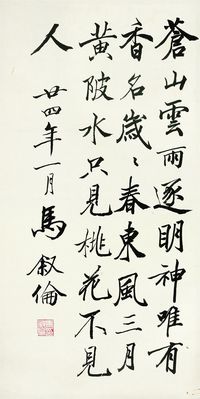 蒼山雲雨逐明神唯有
香名歲〻春東風三月
黃陂水只見桃花不見
人 廿四年一月 馬叙倫